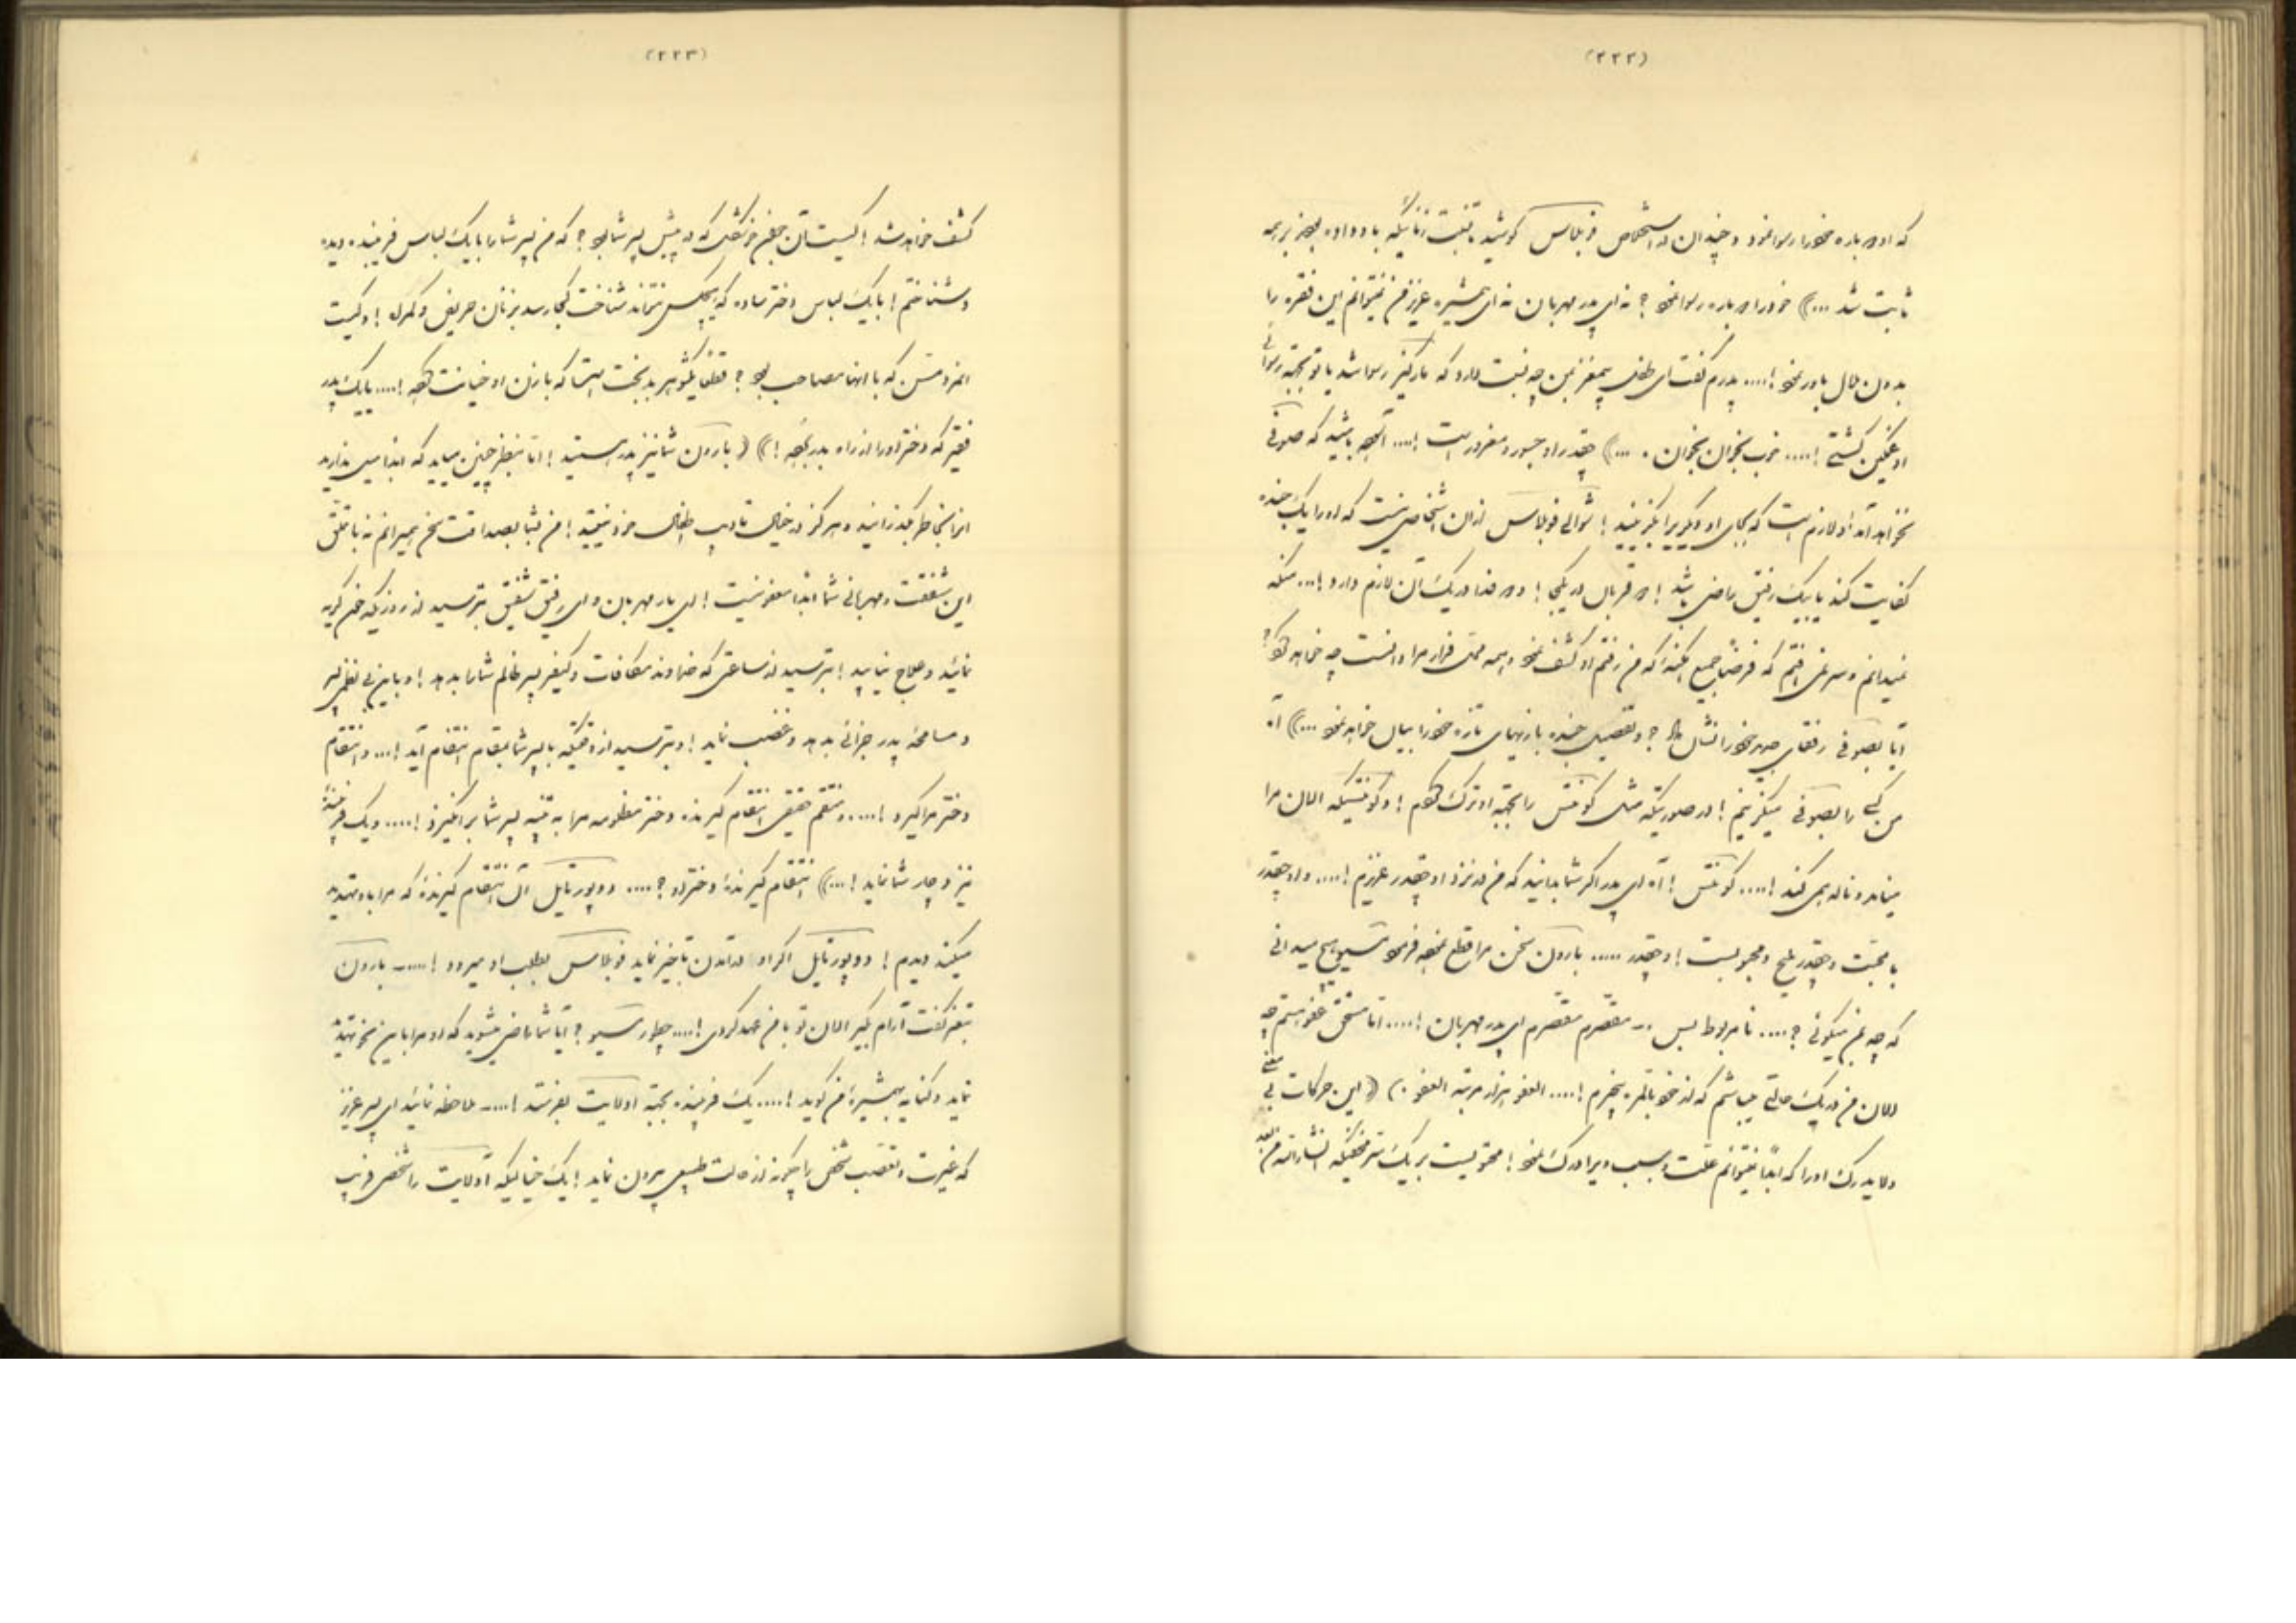 (۲۲۲)
که او درباره خود را رسوا نمود و چندان در استخلاص فوبلاس کوشید تا محبت زنانیکه باو داده بودند بر همه
ثابت شد ...)) خود را دوباره رسوا نمود؟ نه ای پدر مهربان نه ای همشیره عزیز من نمیتوانم این فقره را
بدون ملال باور نمود!.... پدرم گفت ای طفل بیمغز بمن چه نسبت دارد که مارکیز رسوا شد یا تو بجهة رسوائی
او غمگین گشتی!.... خوب بخوان بخوان. ...)) چقدر او جسور و مغرور است!.... اگر باشید که صوفی
نخواهد آمد او لازم است که بجای او دیگریرا بگزینید! شوالی فوبلاس از آن اشخاصی نیست که او را یک
کفایت کند یا بیک رفیق راضی باشد! در قربال در یکجا! و در فلاندر یک آن لازم دارد!... منکه
نمیدانم و سر نمی‌افتم که فرضاً جمیع امکنه‌ که من رفتم او کشف نمود و همه محل فرار مرا دانست چه خواهد کرد؟
آیا بصوفی رفقای خود را نشان داد؟ و تفصیل خنده بازیهای تازه خود را بیان خواهد نمود ...)) آه
من کی را بصوفی میگزینم! در صورتیکه مثل کونتس را بجهة او ترک کردم! و کونتسیکه الان مرا
میخواند و ناله همی کند!.... کونتس! آه ای پدر اگر شما بدانید که من در نزد او چقدر عزیزم!.... و او چقدر
با محبت و چقدر ملیح و محجوبست! و چقدر ..... بارون سخن مرا قطع نموده فرمود مسیو هیچ میدانی
که چه بمن میگوئی؟.... نامربوط بس -- مقصرم مقصرم ای پدر مهربان!.... اما مستحق عفو هستم چه
الان من در یک حالتی میباشم که از خود بالمره بیخبرم!.... العفو هزار مرتبه العفو.) (این حرکات بی معنی
و لایدرک او را که ابداً نمیتوانم علت و سبب ویرا درک نمود! محتویست بر یک سر مخفیکه انشاءالله من بعد
(۲۲۳)
کشف خواهد شد! کیست آن جعفر خوشگل که در پیش پسر شما بود؟ که من پسر شما را با یک لباس فریبنده دیده
و شناختم! با یک لباس دختر ساده که هیچکس نتواند شناخت کجا رسد بزنان حریف و مکار! و کیست
آنزد من که با اینها مصاحب بود؟ قطعاً یک شوهر بدبخت است که با زن او خیانت کرده!.... یا یک پدر
فقیر که دختر او را از راه بدر برده!)) (بارون شما نیز پدر هستید! اما بنظر چنین میاید که ابدا میل ندارید
اینرا بخاطر بگذرانید و هرگز در خیال تادیب اطفال خود نیستید! من بشما بصداقت سخن میرانم نه با تملق
این شفقت و مهربانی شما ابدا معفو نیست! ای یار مهربان و ای رفیق شفیق بترسید از روزیکه ختم گریه
نمائید و علاج نیابید! بترسید از ساعتی که خداوند مکافات و کیفر پسر ظالم شما را بدهد! و باین بی نظمی پسر
و مسامحه پدر جزائی بدهد و غضب نماید! و بترسید از وقتیکه با پسر شما بمقام انتقام آید!... و انتقام
دختر مرا گیرد!..... و منتقم حقیقی انتقام گیرنده دختر مظلومه مرا به تنبیه پسر شما برانگیزد!.... و یک فریبنده
نیز دچار شما نماید!...)) انتقام گیرنده دختر او؟.... دوپورتایل آن انتقام گیرنده که مرا باو تهدید
میکند دیدم! دوپورتایل اگر او در آمدن تأخیر نماید فوبلاس بطلب او میرود!.... بارون
بتغیر گفت آرام بگیر الان تو با من عهد کردی!.... چطور مسیو؟ آیا شما راضی میشوید که او مرا باین نحو تهدید
نماید و کنایه بهمشیره من گوید!.... یک فریبنده بجهة اودلایت بفرستد!.... ملاحظه نمائید ای پسر عزیز
که غیرت و تعصب شخص را چگونه از حالت طبیعی بیرون نماید! یک خیالیکه اودلایت را شخصی فریب